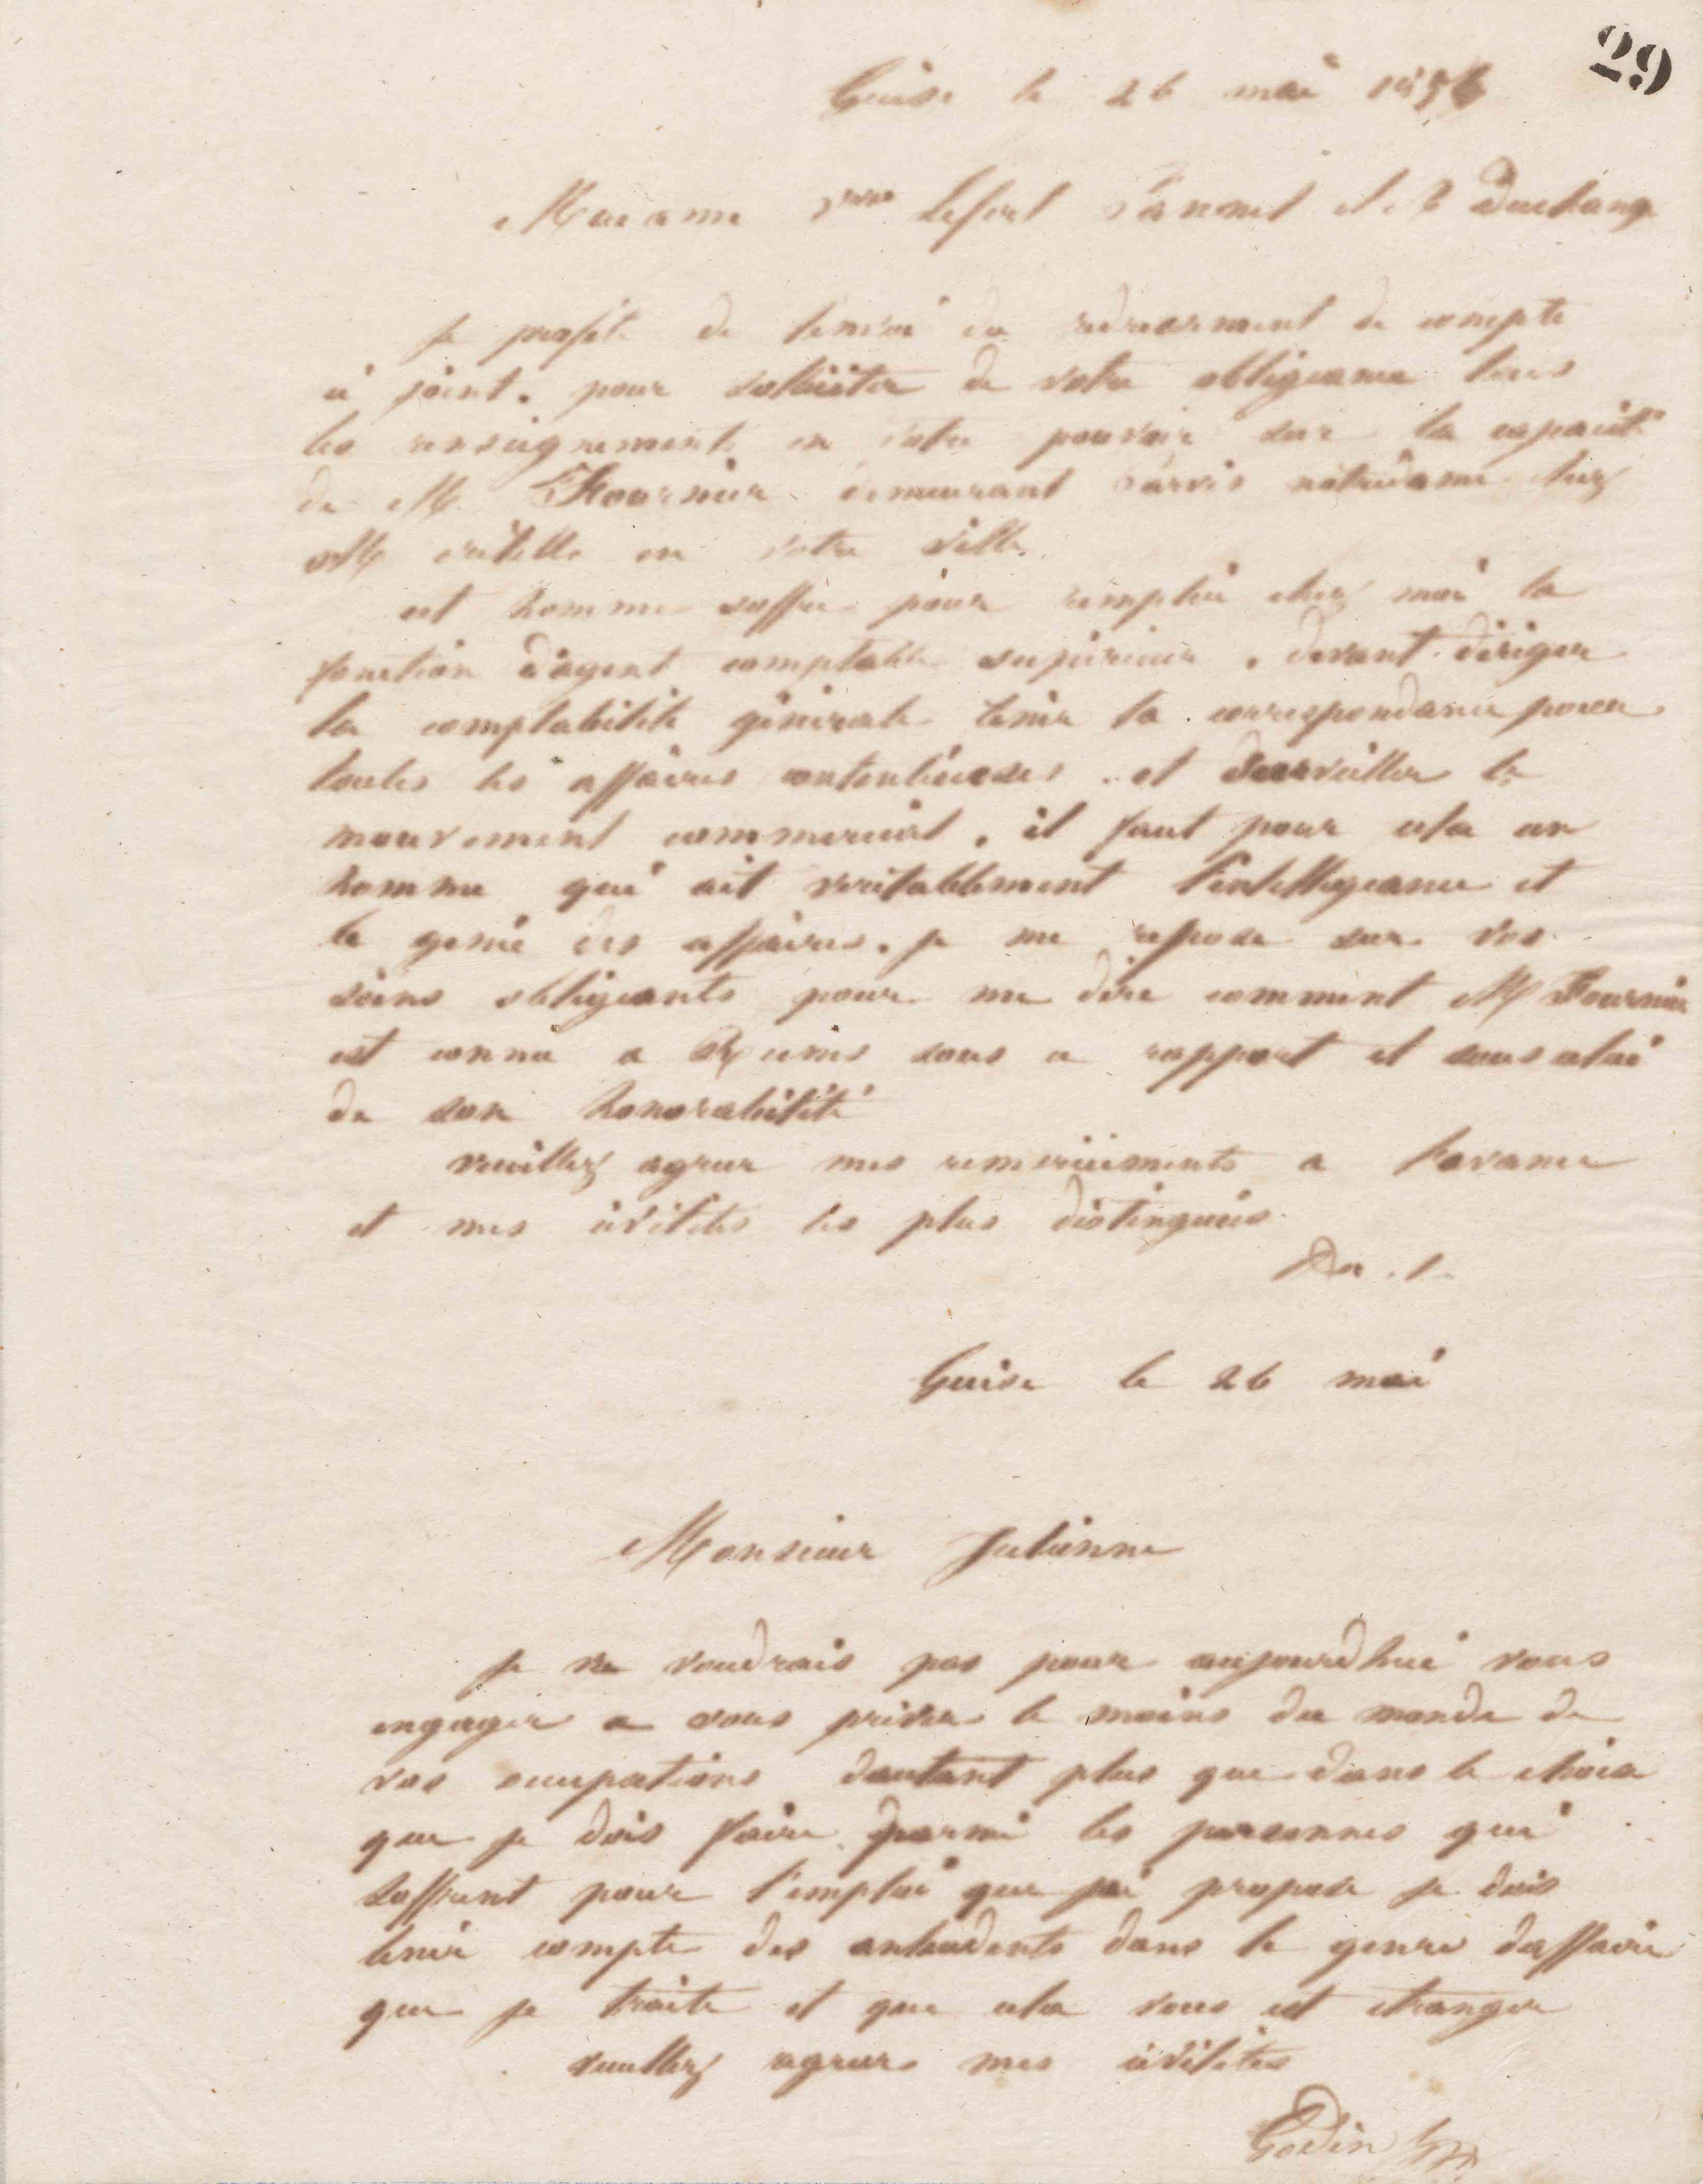 29
Guise le 26 mai
Madame Vve Lefort et Duchange
Je profite de lenvoi du redressement de compte
ci joint. pour solliciter de votre obligeance tous
les renseignements en votre pouvoir sur la capacité
de M. Fournier demeurant Parvis notredame chez
M en votre ville.
cet homme soffre pour remplir chez moi la
fonction d'agent comptable supérieur. devant diriger
la comptabilité générale tenir la correspondance pour
toutes les affaires contentieuses. et surveiller le
mouvement commercial. il faut pour cela un
homme qui ait veritablement l'intelligeance et
le genie des affaires. je me repose sur vos
soins obligeants pour me dire comment M Fournier
est connu a Reims sous ce rapport et sous celui
de son honorabilité
veuillez agreer mes remerciements a lavance
et mes civilités les plus distinguées
Guise le 26 mai
Monsieur Julienne
Je ne voudrais pas pour aujourdhui vous
engager a vous priver le moins du monde de
vos occupations dautant plus que dans le choix
que je dois faire parmi les personnes qui
soffrent pour l'emploi que jai proposé je dois
tenir compte des antecedents dans le genre daffaire
que je traite et que cela vous est etranger
veuillez agreer mes civilités
Godin